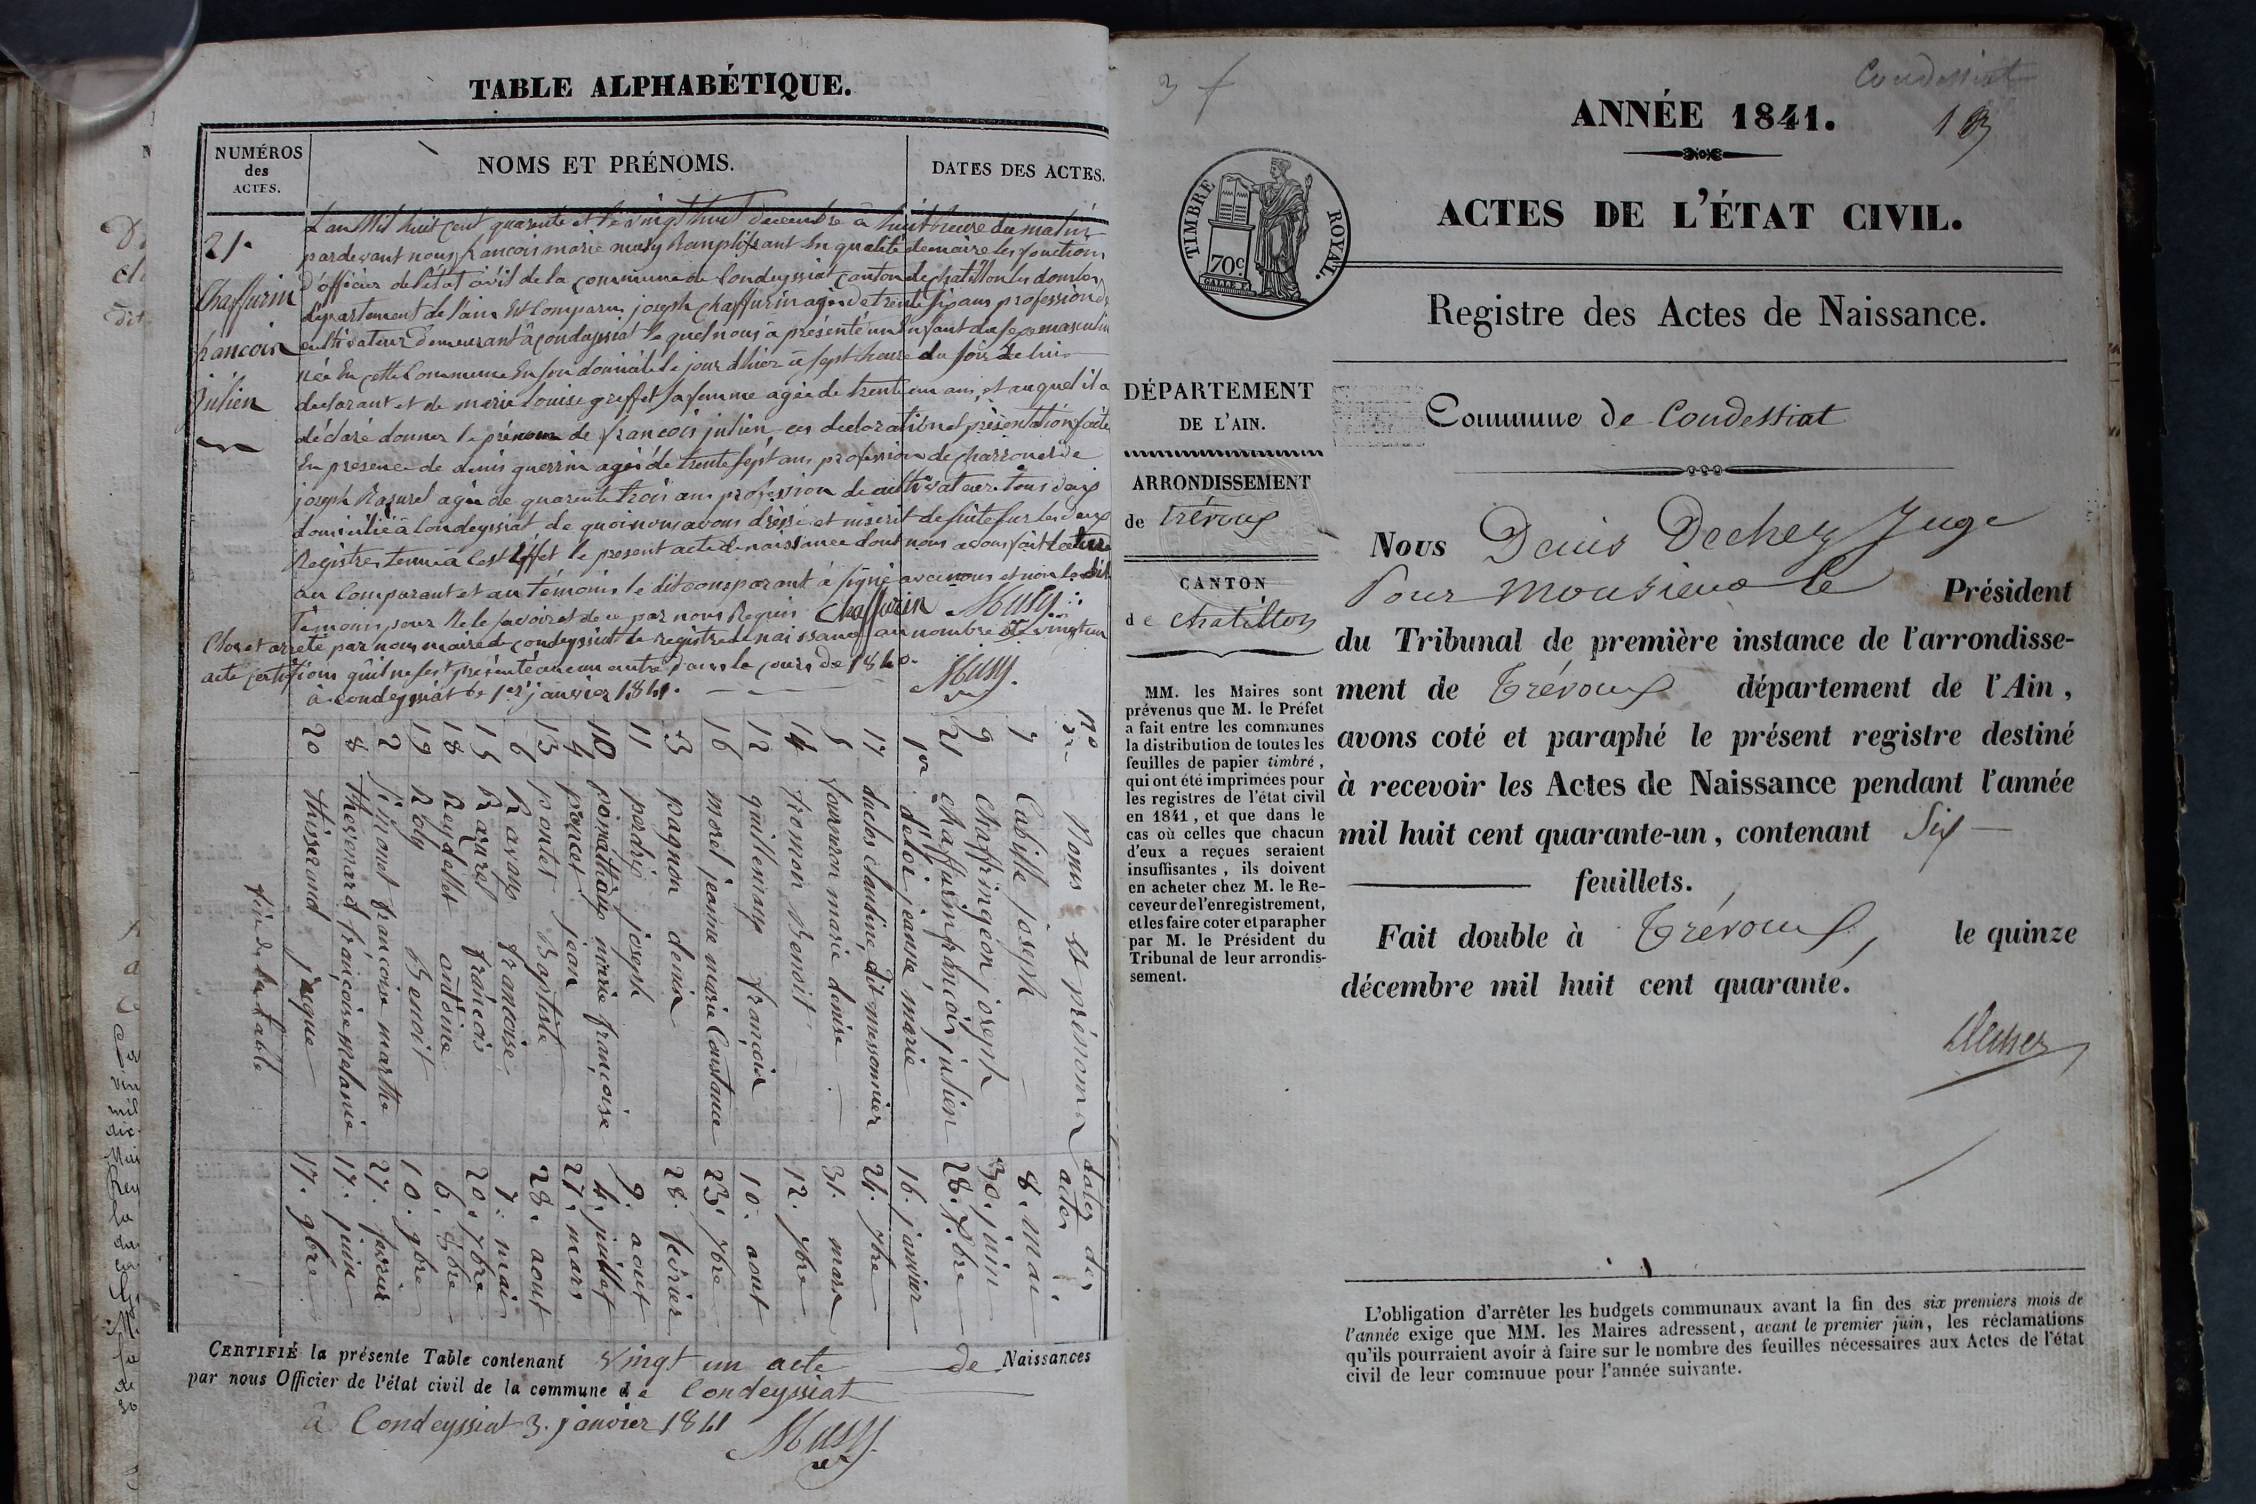 TABLE ALPHABÉTIQUE.
NUMÉROS
des
ACTES.
NOMS ET PRÉNOMS.
DATES DES ACTES.
21.
Chaffurin
francois
julien
L'an Mil huit cent quarente et le vingt huit decembre à huit heure du matin
pardevant nous francois marie musy Ramplissant En qualité de maire les fonctions
d'officier de l'état civil de la commune de Condeyssiat canton de chatillon les dombes
departement de l'ain Est Comparu joseph chaffurin agé de trente six ans profession de
cultivateur demeurant à condeyssiat le quel nous à présenté un Enfant du sexe masculin
née En cette Commune En son domicile le jour d'hier à sept heure du soir de lui
declarant et de marie Louise greffet sa femme agée de trente un ans, et auquel il a
déclaré donner le prénom de francois julien ces declaration et présentation faite
En presence de denis guerrin agé de trente sept ans profession de charron et de
joseph Rasurel agée de quarente trois ans profession de cultivateur tous deux
domicilié à Condeyssiat de quoi nous avons dressé et inscrit de suite sur les deux
Registres tenu à cest Effet le present acte de naissance dont nous avons fait lecture
au Comparant et au témoins le dit comparant à signé avec nous et non les dit
Temoins pour Ne le savoir de ce par nous Requis Chaffurin Musy
Clos et arreté par nous maire de condeyssiat le registre de naissance au nombre de vingt un
acte certifions qu'il ne s'est présenté aucun autre dans le cours de 1840.
à condeyssiat le 1er janvier 1841. Musy
No Noms et prénoms dates des actes
7 Cabille joseph 8. mai
9 Chaffringeon joseph 30. juin
21 chaffurin francois julien 28. Xbre
1er deloi jeanne marie 16. janvier
17 duclos claudine, dit messonnier 24. 7bre
5 fourneron marie denise 31. mars
14 fromon Benoit 12. 7bre
12 guillermin francois 10. aout
16 morel jeanne marie Constance 23. 7bre
3 pagnon denis 28. fevrier
11 perdrix joseph 9. aout
10 poimathaux marie francoise 4. juillet
4 poncet jean 27. mars
13 pontet Baptiste 28. aout
6 Ravass francoise 7. mai
15 Rasurel francois 20. 7bre
18 Reydellet antoine 6. 8bre
19 Roly Benoit 10. 9bre
2 Simonet francoise marthe 27. fevrier
8 thevenard françoise melanie 17. juin
20 thisserand jacque 17. 9bre
fin de la table
CERTIFIÉ la présente Table contenant vingt un acte de Naissances
par nous Officier de l'état civil de la commune de Condeyssiat
à Condeyssiat 3. janvier 1841
Musy
Condessiat
ANNÉE 1841.
TIMBRE ROYAL.
70c
ACTES DE L'ÉTAT CIVIL.
Registre des Actes de Naissance.
DÉPARTEMENT
DE L'AIN.
ARRONDISSEMENT
de Trévoux
CANTON
de Chatillon
MM. les Maires sont
prévenus que M. le Préfet
a fait entre les communes
la distribution de toutes les
feuilles de papier timbré,
qui ont été imprimées pour
les registres de l'état civil
en 1841, et que dans le
cas où celles que chacun
d'eux a reçues seraient
insuffisantes, ils doivent
en acheter chez M. le Re-
ceveur de l'enregistrement,
et les faire coter et parapher
par M. le Président du
Tribunal de leur arrondis-
sement.
Commune de Condessiat
Nous Denis Dechey Juge
Pour Monsieur le Président
du Tribunal de première instance de l'arrondisse-
ment de Trévoux département de l'Ain,
avons coté et paraphé le présent registre destiné
à recevoir les Actes de Naissance pendant l'année
mil huit cent quarante-un, contenant Six
feuillets.
Fait double à Trévoux, le quinze
décembre mil huit cent quarante.
Dechey
L'obligation d'arrêter les budgets communaux avant la fin des six premiers mois de
l'année exige que MM. les Maires adressent, avant le premier juin, les réclamations
qu'ils pourraient avoir à faire sur le nombre des feuilles nécessaires aux Actes de l'état
civil de leur commune pour l'année suivante.